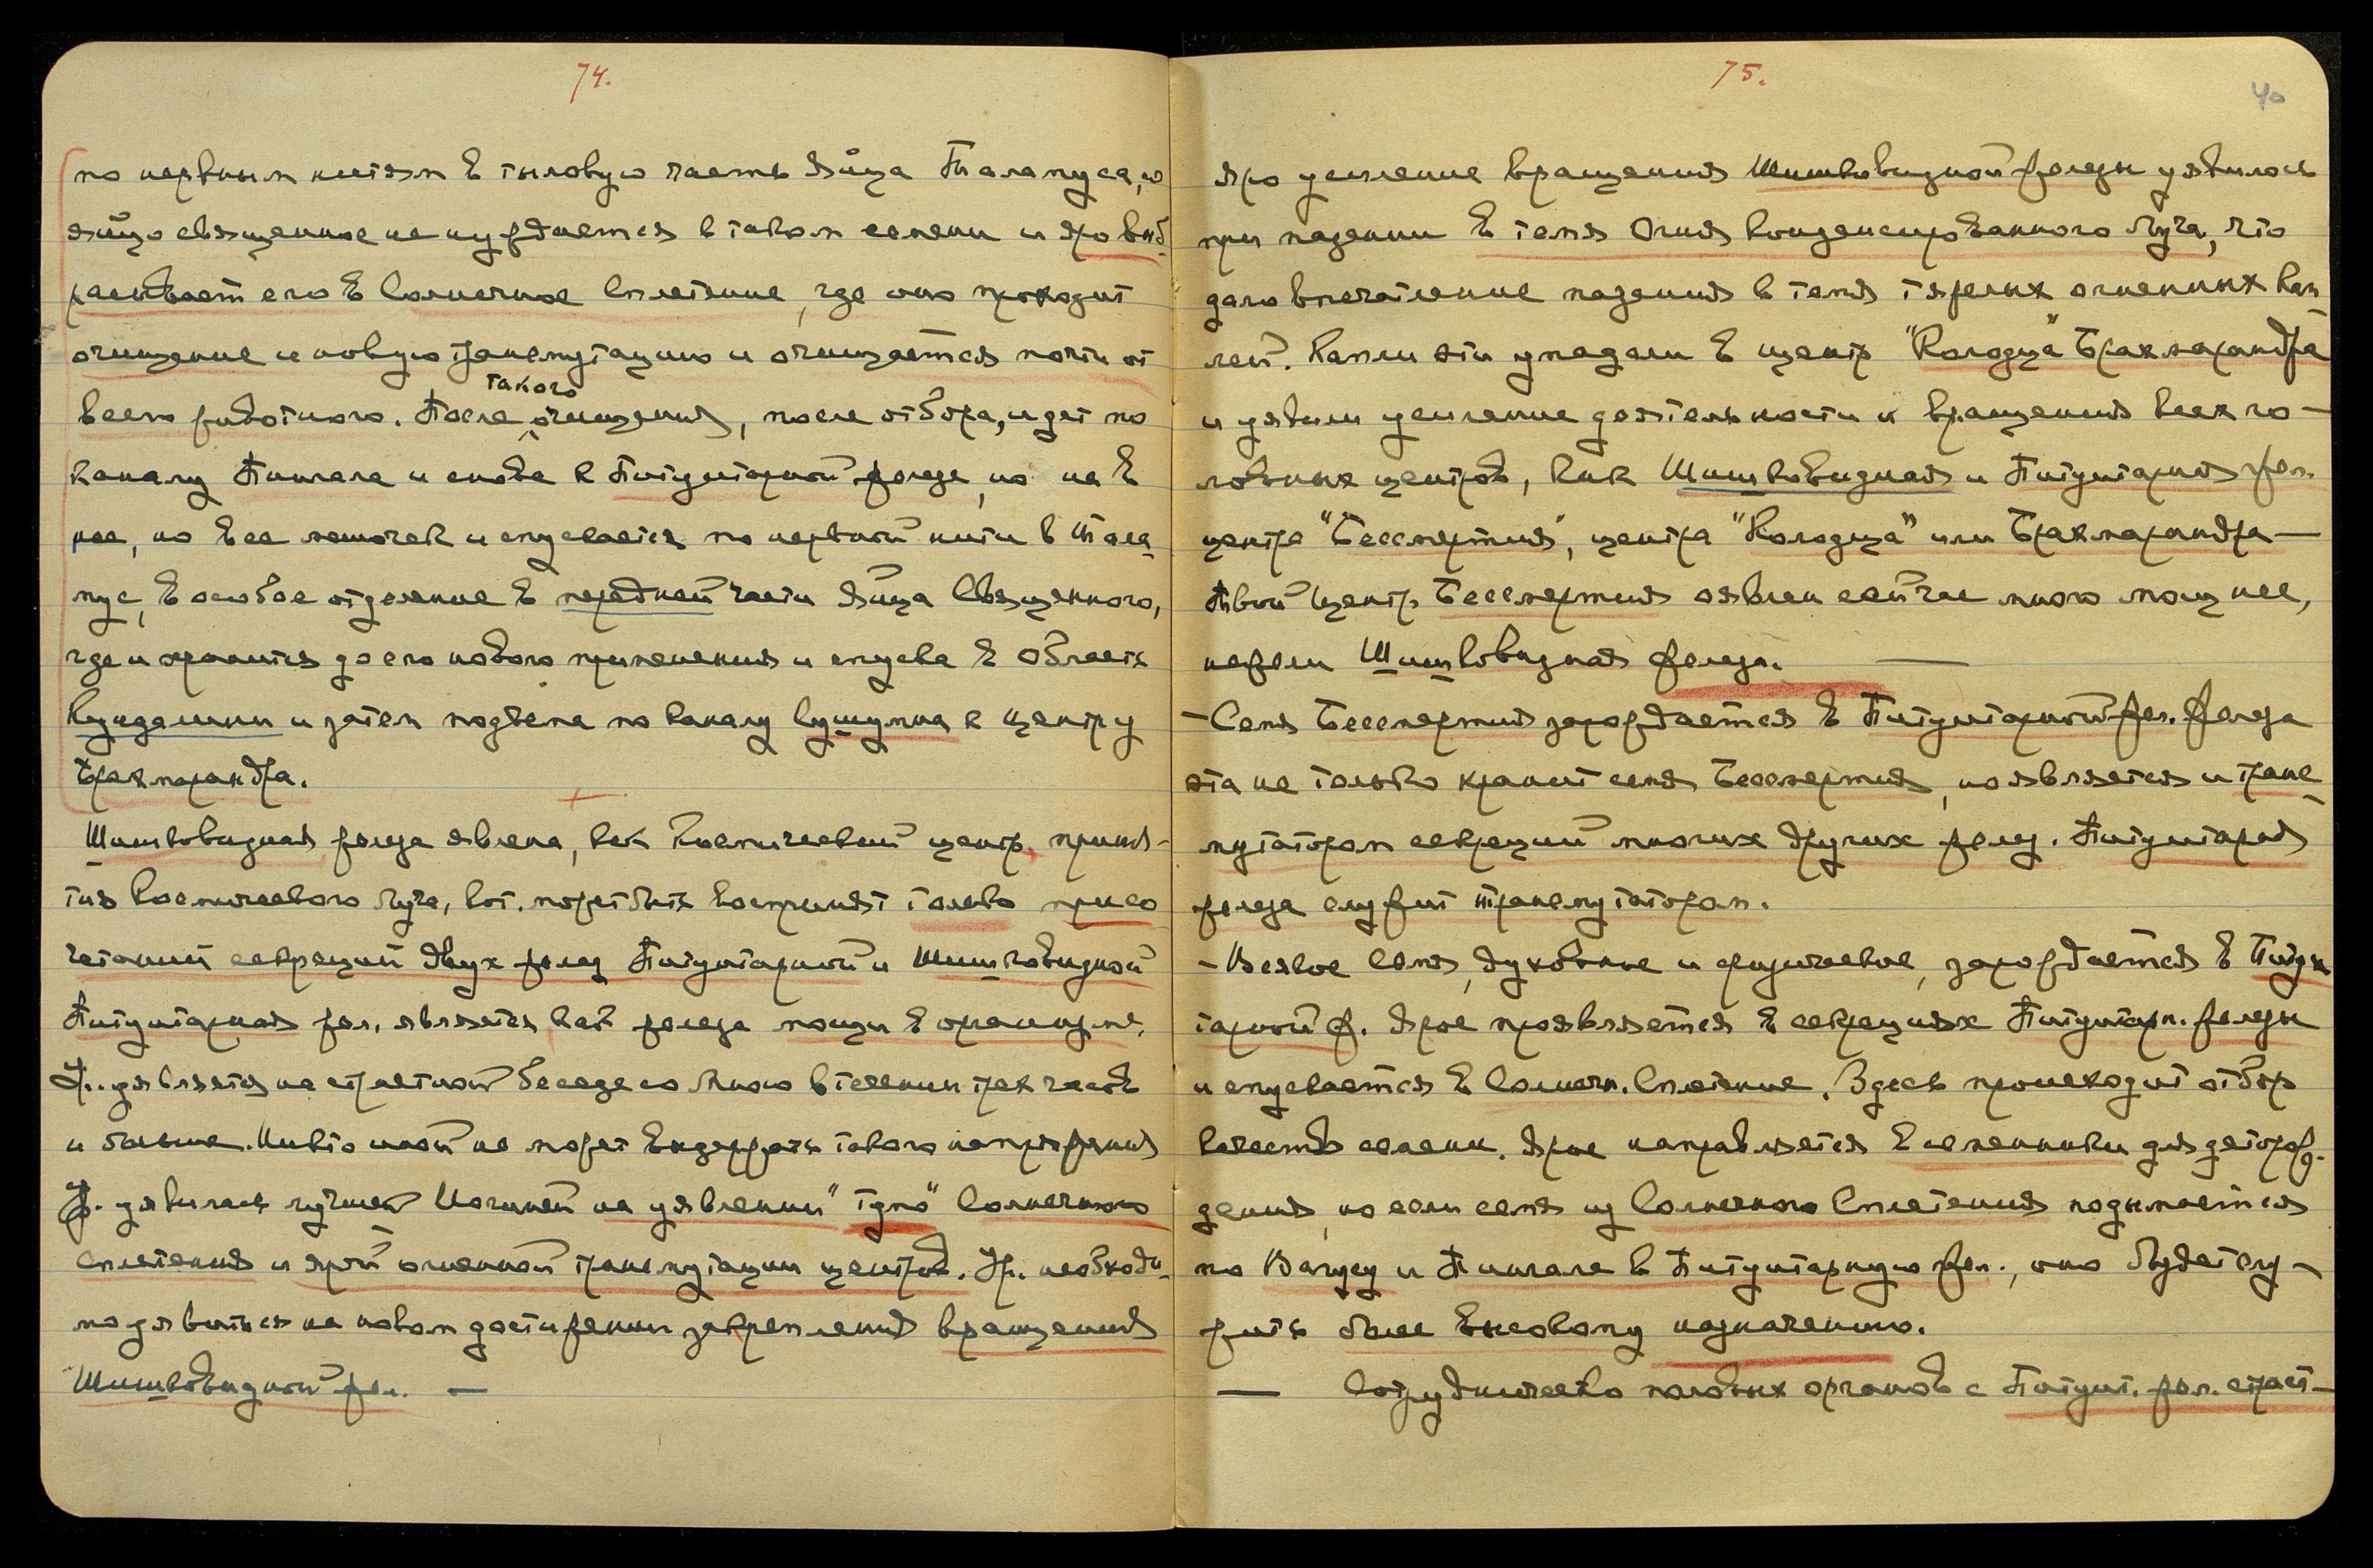 74.
по нервным нитям в тыловую часть Яйца Таламуса, но
яйцо священное не нуждается в таком семени и яро выб-
расывает его в Солнечное Сплетение, где оно проходит
очищение и новую трансмутацию и очищается почти от
всего животного. После такого очищения, после отбора, идет по
каналу Пингала и снова к Питуитарной железе, но не в
нее, но в ее мешочек и спускается по нервной нити в Тала-
мус, в особое отделение в передней части Яйца Священного,
где и хранится до его нового применения и спуска в область
Кундалини и затем подъема по каналу Сушумна к центру
Брахмарандра.
Шишковидная железа явлена, как Космический центр приня-
тия Космического Луча, кот. может быть воспринят только при со
четании секреций двух желез Питуитарной и Шишковидной
Питуитарная жел. является как железа мощи в организме.
Ур. уявляется на страстной беседе со Мною в течении трех часов
и больше. Никто иной не может выдержать такого напряжения
Ур. уявилась лучшей Йогиней на уявлении "тумо" Солнечного
сплетения и ярой огненной трансмутации центров. Ур. необходи-
мо уявиться на новом достижении закрепления вращения
Шишковидной жел. —
75.
40
Яро усиление вращения Шишковидной железы уявилось
при падении в темя Огня конденсированного Луча, что
дало впечатление падения в темя тяжелых огненных кап-
лей. Капли эти упадали в центр "Колодца" Брахмарандра
и уявили усиление деятельности и вращения всех го-
ловных центров, как Шишковидная и Питуитарная жел.
центра "Бессмертия", центра "Колодца" или Брахмарандра —
Твой Центр Бессмертия оявлен сейчас много мощнее,
нежели Шишковидная железа. —
- Семя Бессмертия зарождается в Питуитарной жел. Железа
эта не только хранит семя Бессмертия, но является и транс-
мутатором секреций многих других желез. Питуитарная
железа служит трансмутатором.
- Всякое Семя, духовное и физическое, зарождается в Питуи
тарной ж. Ярое проявляется в секрециях Питуитарн. железы
и спускается в Солнечн. Сплетение. Здесь происходит отбор
качеств семени. Ярое направляется в семенники для деторож-
дения, но если семя из Солнечного Сплетения подымается
по Вагусу и Пингале в Питуитарную жел., оно будет слу-
жить более высокому назначению.
— Сотрудничество половых органов с Питуит. жел. страст-